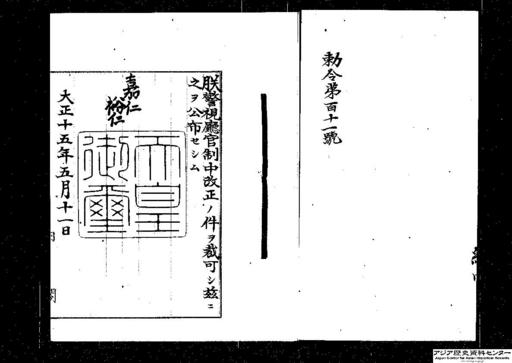 勅令第百十一號
朕警視廳官制中改正ノ件ヲ裁可シ茲ニ
之ヲ公布セシム
嘉仁
裕仁
天皇
御璽
大正十五年五月十一日
アジア歴史資料センター
Japan Center for Asian Historical Records